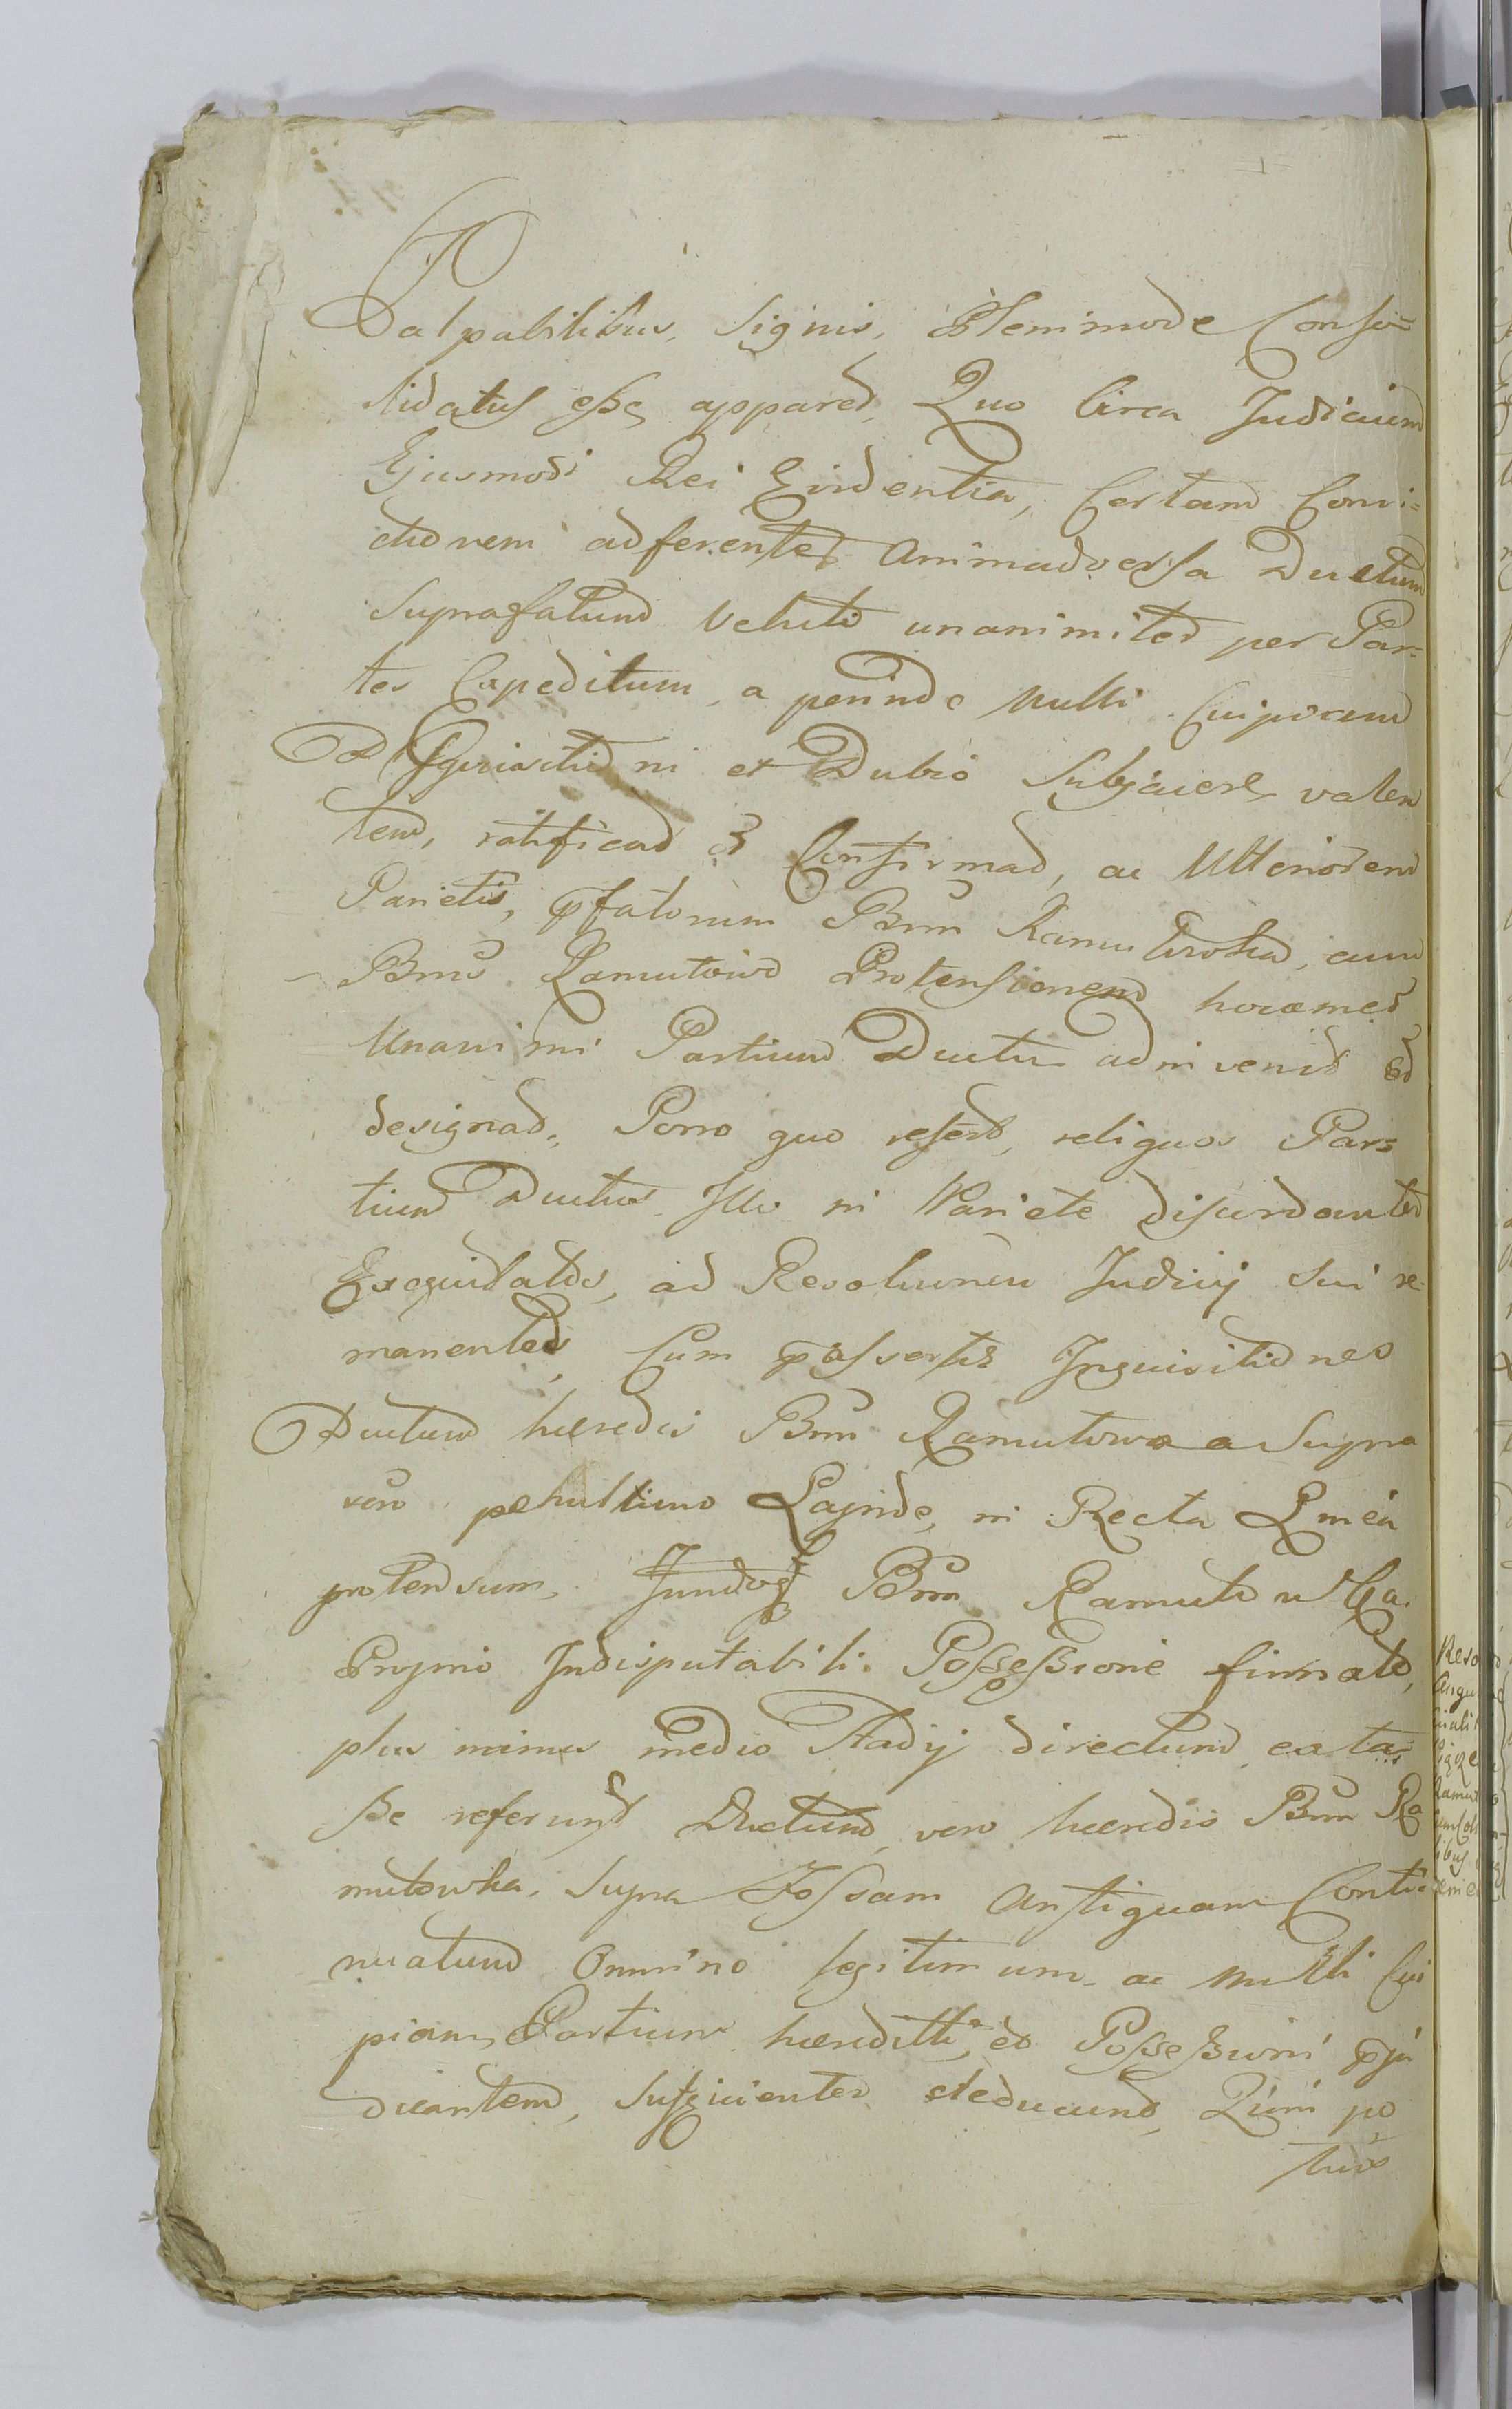 Palpabilibus, Signis, Plenimode Conso=
lidatus esse apparet, Quo Circa Judicium
Ejusmodi Rei Evidentia, Certam Convi=
ctionem adferente animadversa Ductum
Suprafatum Veluti unanimiter per Par=
tes Expeditum, a perinde Nulli Cuipiam
Disquisitioni et Dubio Subjacere valen
tem, ratificat et Confirmat, ac Ulteriorem
Parietis, pfatorum Bnm Ramutowka, cum
Bnis Ramutowo Protensionem
Unanimi Partium Ductu adinvenit et
designat, Porro quo refert, reliquos Par=
tium Ductus Illo in Pariete discordanter
Exequitatos, ad Resolutionem Judicij Sui re=
manentes, Cum passertis Inquisitiones
Ductum haeredis Bnm Ramutowo a Supra
vero penultimo Lapide, in Recta Linea
protensum, Bnm Ramutowka
Proprio Indisputabili Possessione firmato,
plus minus medio Stadij directum
se referunt Ductum vero haeredis Bnm Ra
mutowka, Supra Fossam antiquam Conti=
nuatum Omnino legitimum, ac Nulli Cui
piam Partium haereditti, et Possessioni pju
dicantem, Sufficienter deducunt, Quin po
tius
Reso
Augu
Ramut